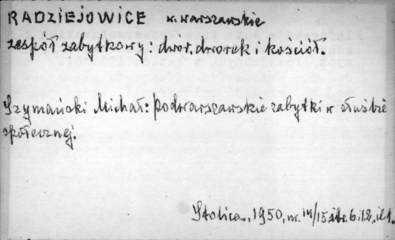 RADZIEJOWICE w. warszawskie
zespół zabytkowy: dwór, dworek i kościół.
Szymański Michał: Podwarszawskie zabytki w służbie
społecznej.
Stolica, 1950, nr. 14/15 str. 6.12, il.